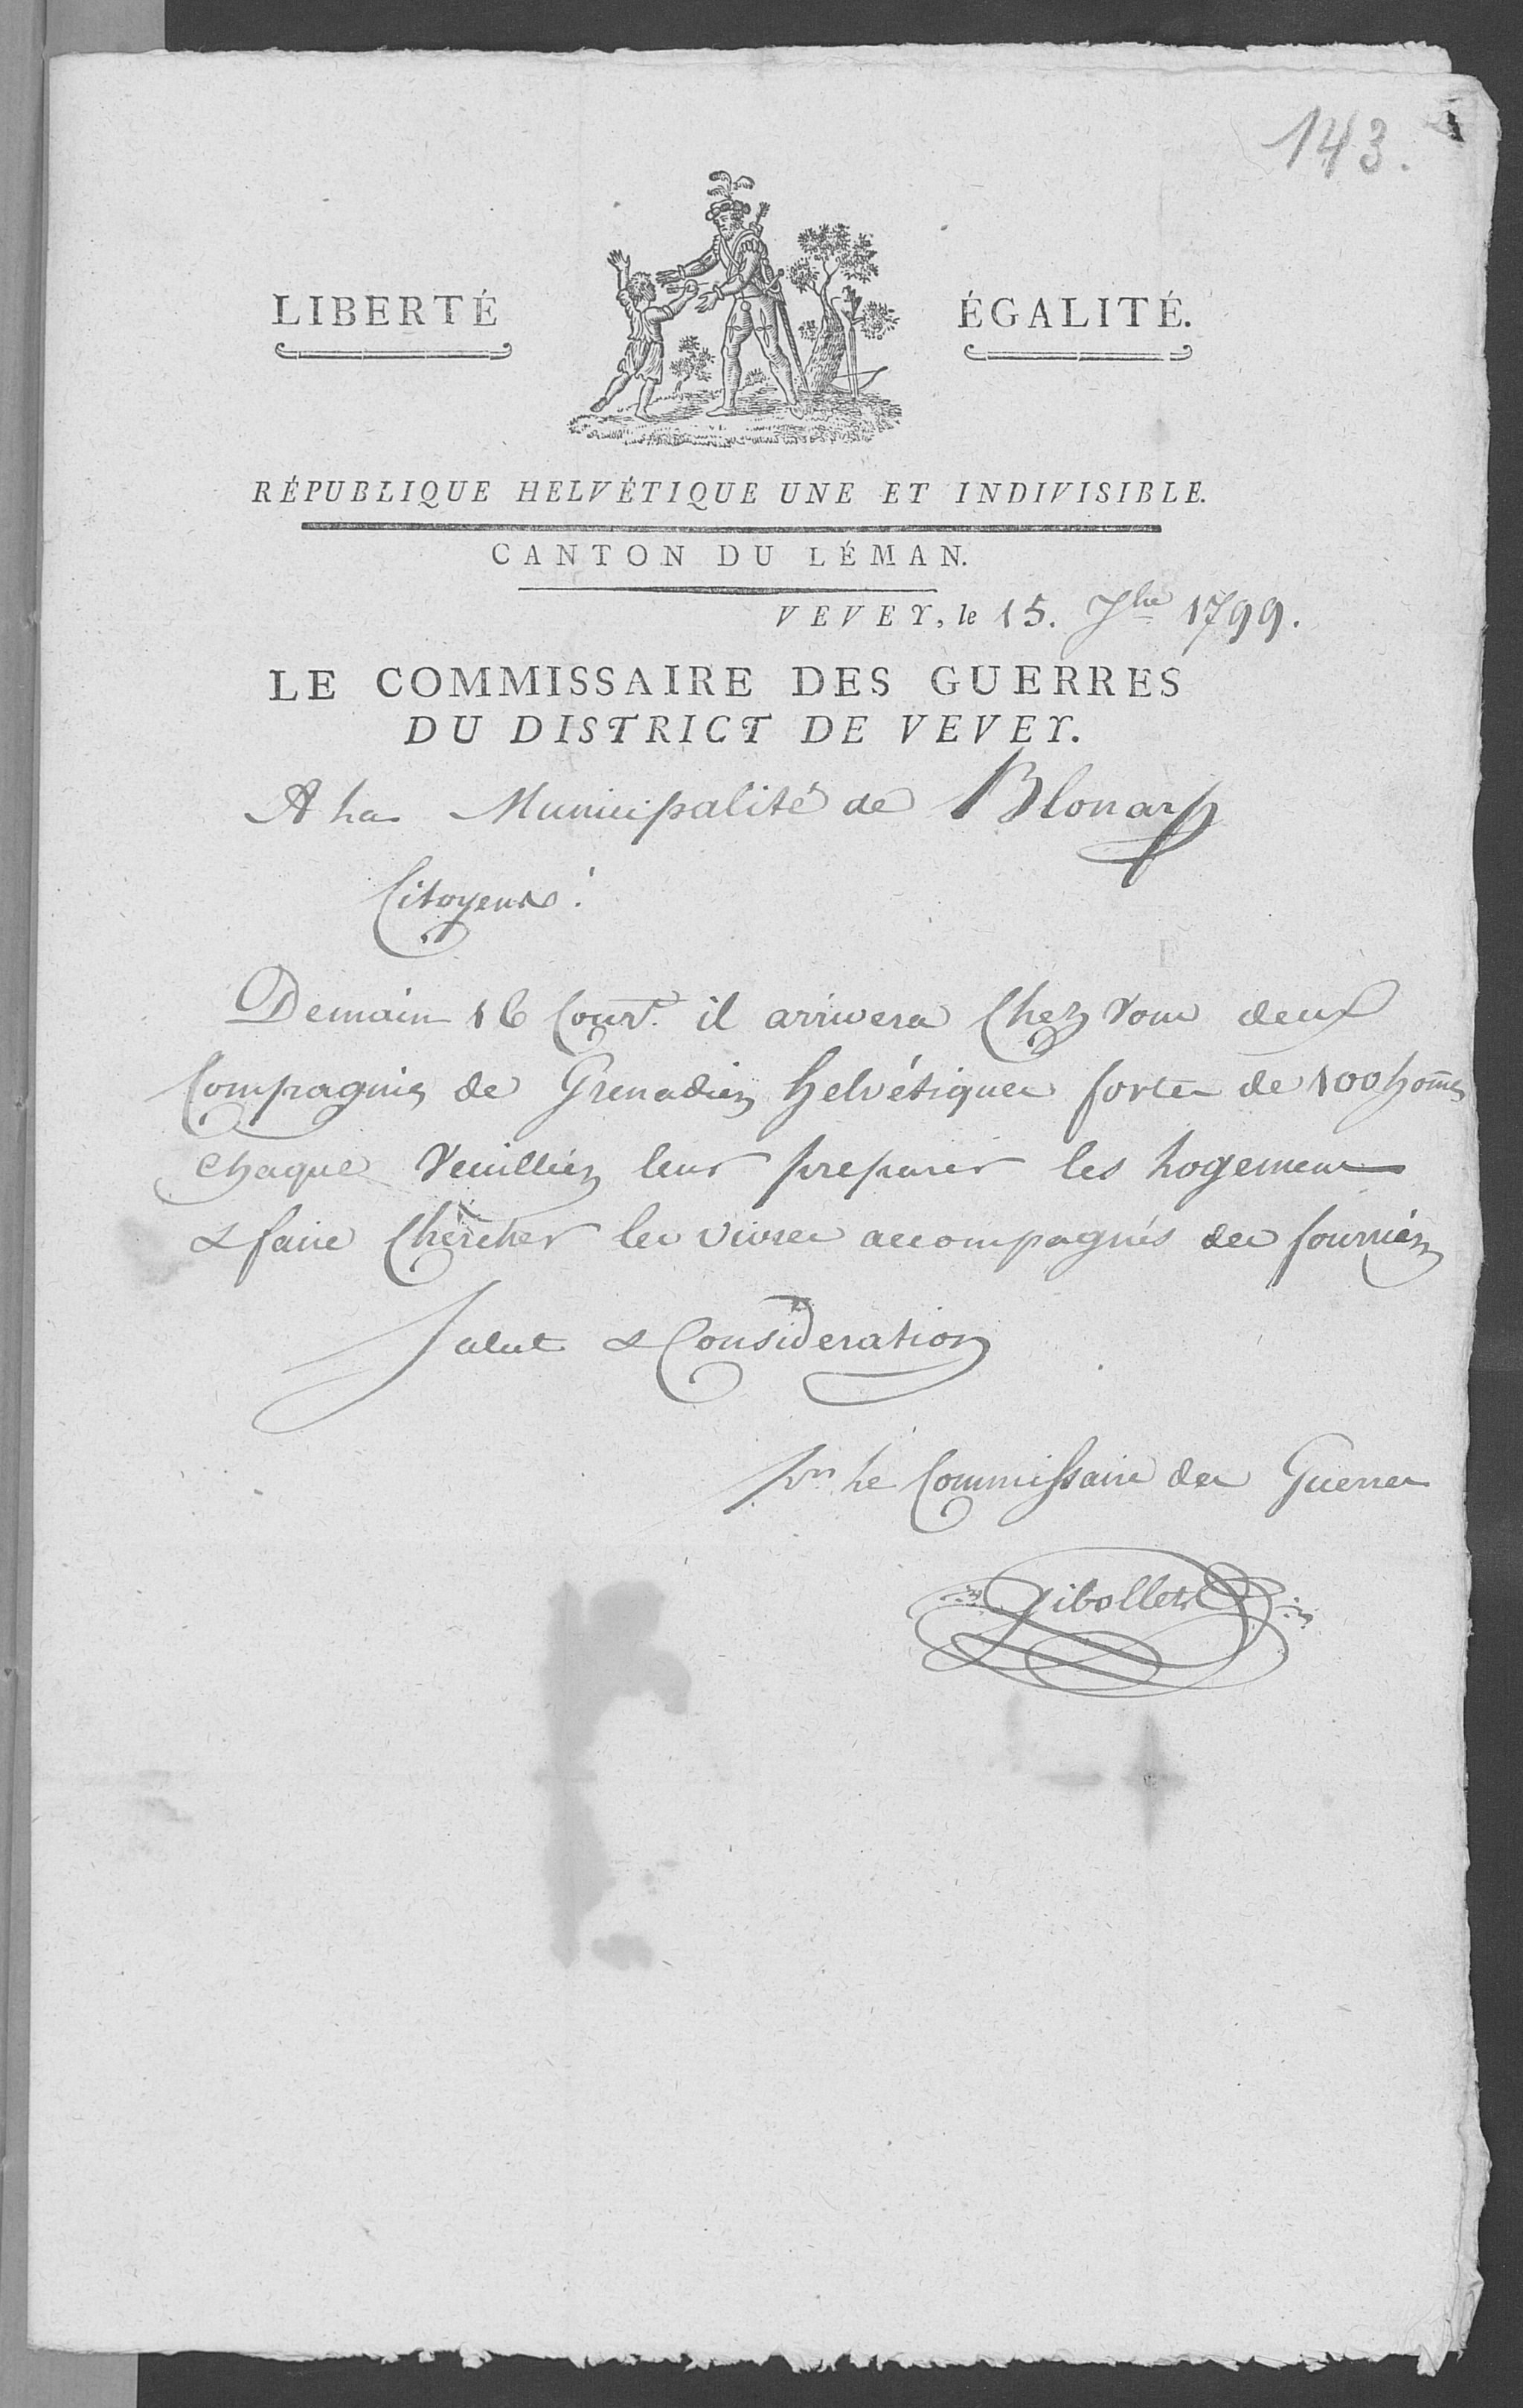 143.
LIBERTÉ ÉGALITÉ.
RÉPUBLIQUE HELVÉTIQUE UNE ET INDIVISIBLE.
CANTON DU LÉMAN.
VEVEY, le 15. 7bre 1799.
LE COMMISSAIRE DES GUERRES
DU DISTRICT DE VEVEY.
A La Municipalité de Blonay
Citoyens!
Demain 16 Cour.t il arrivera Chez Vous deux
Compagnies de Grenadiers helvétiques fortes de 100 hom̄es
chaque Veuilliez leur preparer les Logemens
& faire Chercher les vivres accompagnés des fourriers
Salut & Consideration
Pr Le Commissaire des Guerres
Gibollet